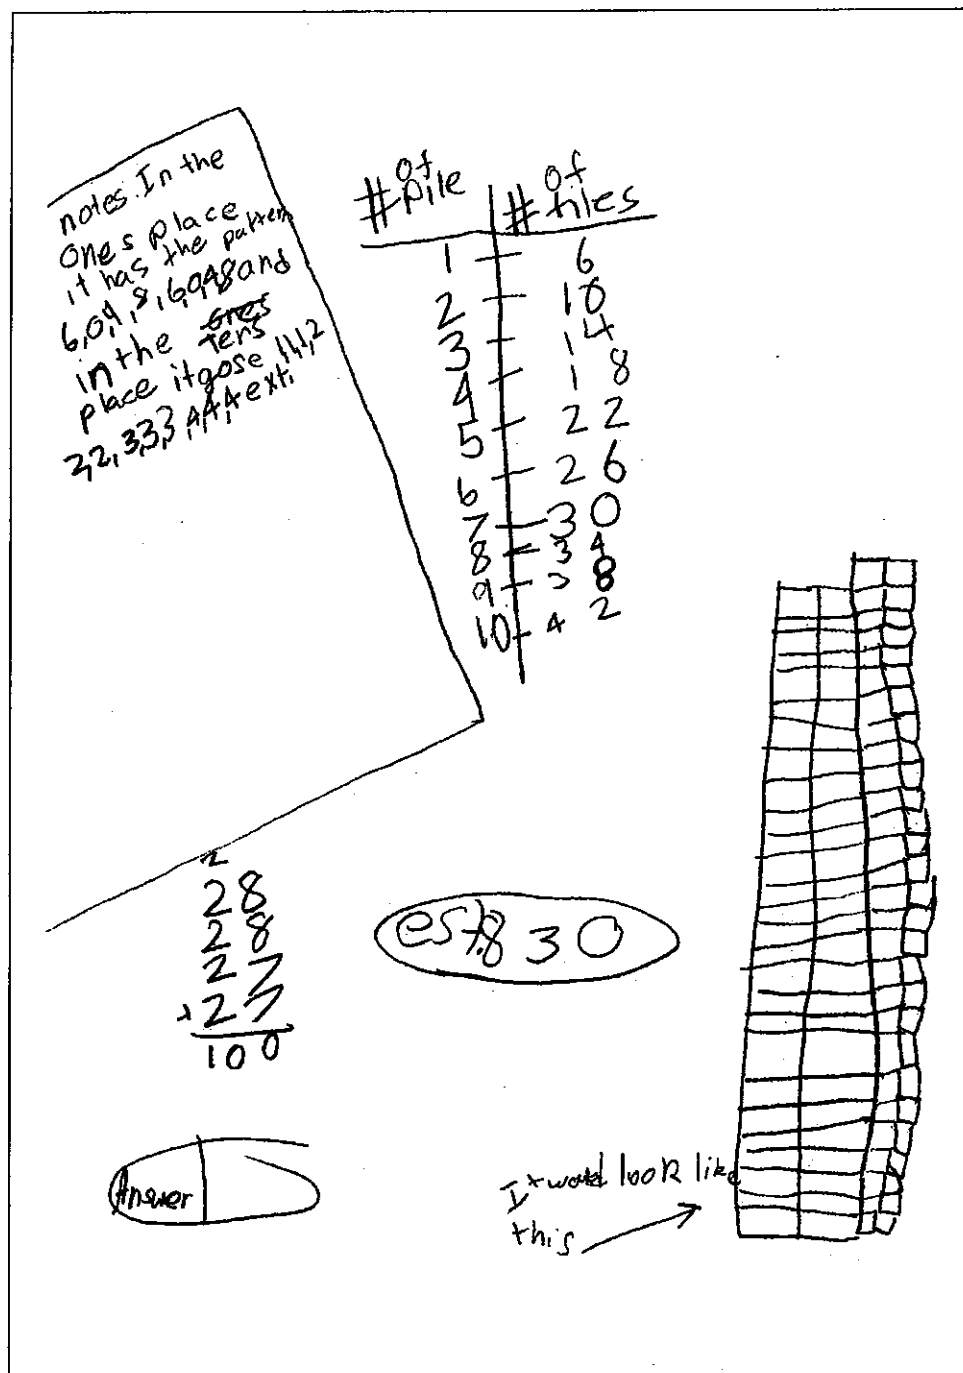 notes. In the
ones place
it has the pattern
6,0,4,8,6,0,4,8 and
in the ones
Tens
place it gose 1,1,1,2
2,2,3,3,3,4,4,4 ext.
# of Pile # of tiles
1 6
2 10
3 14
4 18
5 22
6 26
7 30
8 34
9 38
10 42
2
28
28
27
+27
100
est. 830
Answer
It would look like
this